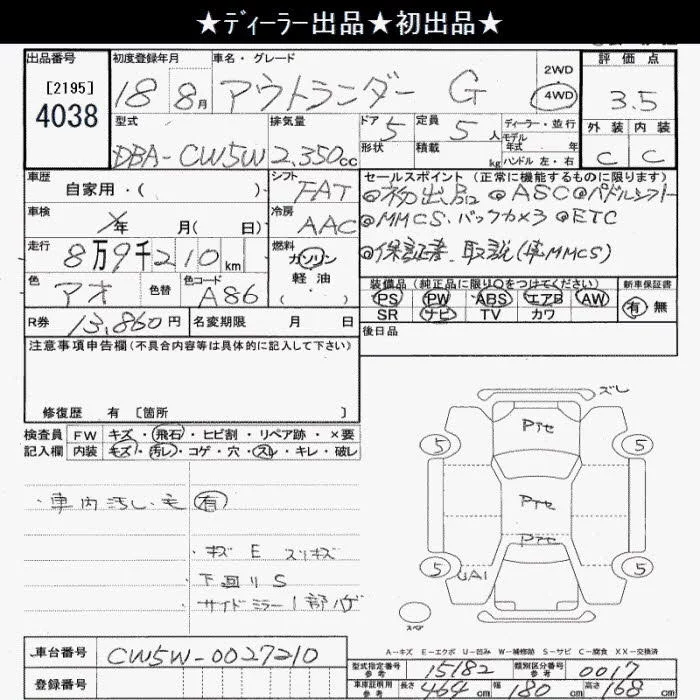 ★ディーラー出品★初出品★
出品番号 初度登録年月 車名・グレード 評価点
[2195]
4038
18 8月 アウトランダー G 2WD 4WD 3.5
外装 内装
C C
型式 排気量 ドア 定員 ディーラー・並行
DBA-CW5W 2,350cc 5 5人 モデル年式 年
形状 積載 kg ハンドル 左・右
車歴 自家用・( )
シフト FAT
セールスポイント (正常に機能するものに限ります)
@初出品 @ASC @パドルシフト
@MMCS.バックカメラ @ETC
@保証書.取説(車MMCS)
車検 年 月( 日)
冷房 AAC
走行 8万9千210km
燃料 ガソリン
軽油
・( )
色 アオ 色替 色コード A86
装備品 (純正品に限り○をつけてください) 新車保証書
PS PW ABS エアB AW 有 無
SR ナビ TV カワ
R券 13,860円 名変期限 月 日
後日品
注意事項申告欄(不具合内容等は具体的に記入して下さい)
修復歴 有 [箇所 ]
検査員 FW キズ・飛石・ヒビ割・リペア跡・×要
記入欄 内装 キズ・汚レ・コゲ・穴・スレ・キレ・破レ
・車内汚レ・毛有
・キズ E スリキズ
下回り S
サイドミラー1部ハゲ
ズレ
Pアセ
5 5
Pアセ
Pアセ
5 5
UA1
スペア
A-キズ E-エクボ U-凹み W-補修跡 S-サビ C-腐食 XX-交換済
車台番号 CW5W-0027210
登録番号
型式指定番号 参考 15182 類別区分番号 参考 0017
車庫証明用 参考 長さ 464cm 幅 180cm 高さ 168cm